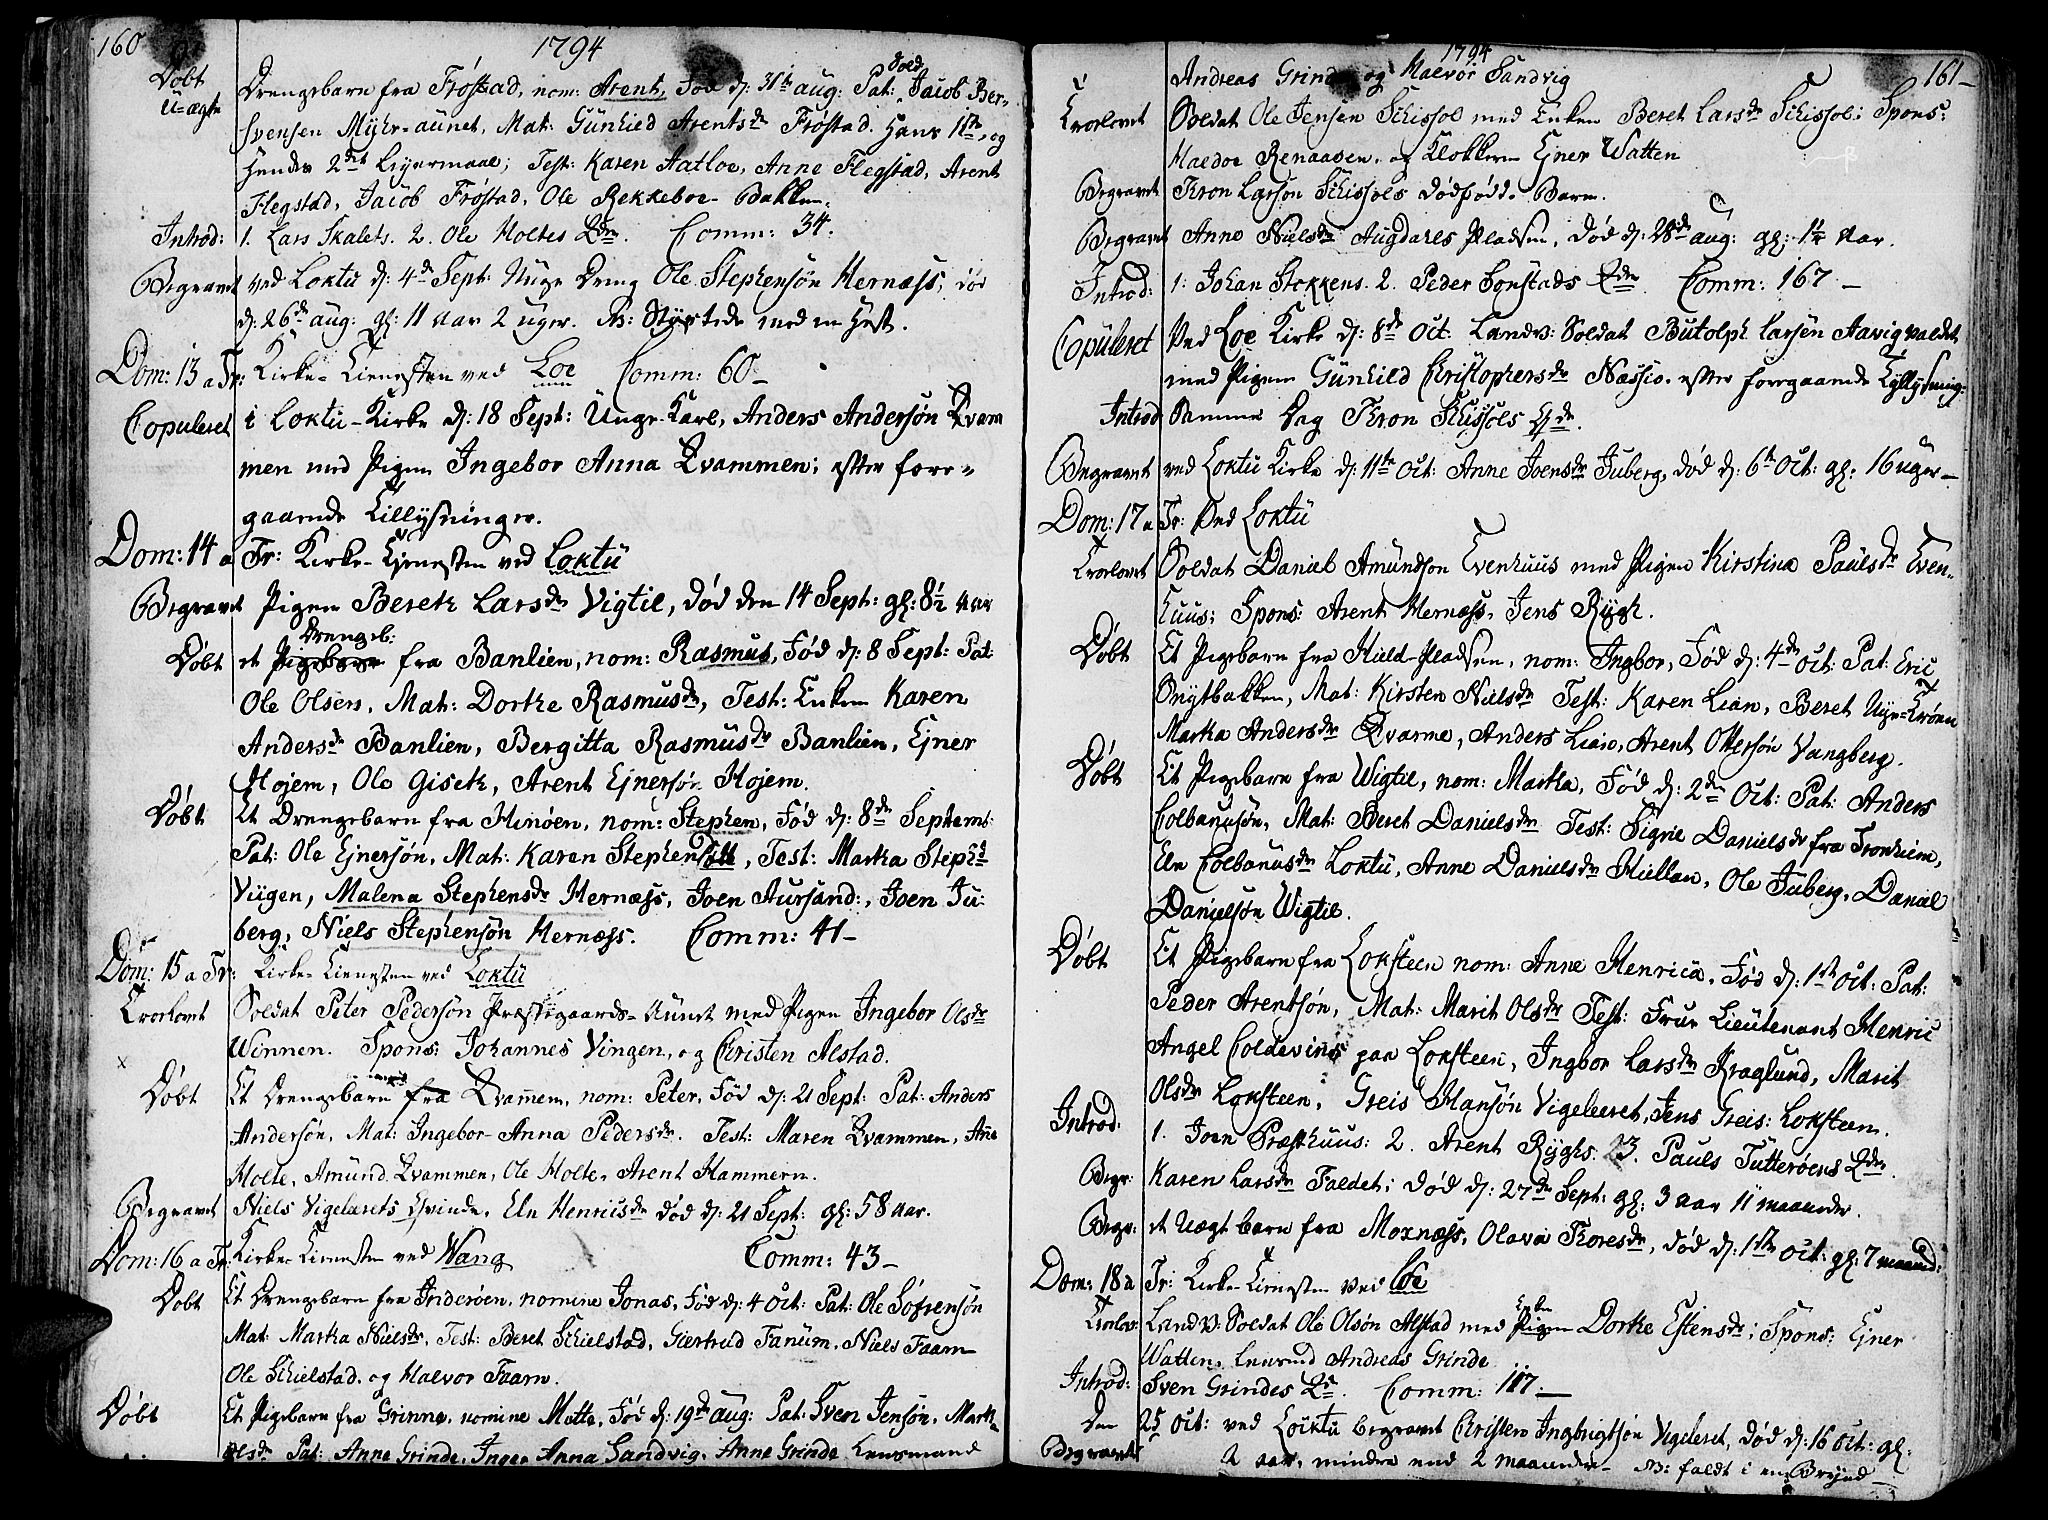 160 1794
Døbt Drengebarn fra Frøstad, nom: Arent, Fød d: 31te aug: Pat: Sold. Jacob Ber-
U-ægte Svensen Myhr-aunet, Mat: Gunhild Arentsdr Frøstad. Hans 1ste, og
Hendes 2det Leyermaal; Test: Karen Aatloe, Anne Flegstad, Arent
Flegstad, Jacob Frøstad, Ole Rekkeboe-Bakken.
Introd: 1. Lars Skalets. 2. Ole Holtes Qdr. Comm: 34.
Begravet ved Loktu d: 4de Sept: Unge Dreng Ole Stephensøn Hernæss, død
d: 26de aug: gl: 11 aar 2 uger. NB: Styrtede med en Hest.
Dom: 13 a Tr: Kirke-Tienesten ved Loe Comm: 60-
Copuleret i Loktu-Kirke d: 18 Sept: Unge-Karl, Anders Andersøn Qvam
men med Pigen Ingebor Anna Qvammen; efter fore-
gaaende Tillysninger.
Dom: 14 a Tr: Kirke-Tjenesten ved Loktu
Begravet Pigen Bereth Larsdr Vigtil, død den 14 Sept: gl: 8½ aar
Døbt et Pigebarn Drengeb: fra Banlien, nom: Rasmus, Fød d: 8 Sept: Pat:
Ole Olsen, Mat: Dorthe Rasmusdr, Test: Enken Karen
Andersdr Banlien, Bergitta Rasmusdr Banlien, Ejner
Hojem, Ole Giseth, Arent Ejnersøn Hojem.
Døbt Et Drengebarn fra Hinøen, nom: Stephen, Fød d: 8de Septemb:
Pat: Ole Ejnersøn, Mat: Karen Stephens , Test: Martha Steph:
Viigen, Malena Stephensdr Hernæss, Joen Aursand:, Joen Ju:
berg, Niels Stephensøn Hernæss. Comm: 41-
Dom: 15 a Tr: Kirke-Tienesten ved Loktu
Trorlovet Soldat Peter Pedersøn Præstegaards-Aunet med Pigen Ingebor Olsdr
Winnen. Spons: Johannes Vingen, og Christen Alstad.
Døbt Et Drengebarn fra Qvamen, nom: Peter, Fød d: 21 Sept: Pat: Anders
Andersøn, Mat: Ingebor-Anna Pedersdr. Test: Maren Qvammen, Ane
Holte, Amund Qvammen, Ole Holte, Arent Hammern.
Begravet Niels Vigelærets Qvinde, Eln Henricsdr død d: 21 Sept: gl: 58 aar.
Dom: 16 a Tr: Kirke-Tienesten ved Wang Comm: 43-
Døbt Et Drengebarn fra Inderøen, nomine Jonas, Fød d: 4 Oct: Pat: Ole Sofrensøn
Mat: Martha Nielsdr, Test: Beret Schielstad, Giertrud Fanum, Niels Faarn
Ole Schielstad. og Halvor Faarn.
Døbt Et Pigebarn fra Grinne, nomine Mette, Fød d: 19de aug: Pat: Sven Jensøn, Marth
Olsdr Pat: Anne Grinde, Inger Anna Sandvig, Anne Grinde Lensmand
1794 161-
Andreas Grinde og Halvor Sandvig
Trorlovet Soldat Ole Jensen Schissol med Enken Beret Larsdr Schissol: Spons:
Haldor Renaasen, og Klokkeren Ejner Watten
Begravet Thron Larsøn Schissols dødfødde Barn.
Begravet Anne Nielsdr Augdahls Pladsen, død d: 28de aug: gl: 1¼ Aar.
Introd: 1. Johan Stokkens. 2. Peder Sonstads Qdr. Comm: 167-
Copuleret Ved Loe Kirke d: 8de Oct. Landv: Soldat Butolph Larsen Aavigvaldet
med Pigen Gunhild Christophersdr Næssie. efter foregaaende Tyllysning:
Introd Samme Dag Thron Schissols Qde.
Begravet ved Loktu Kirke d: 11te Oct: Anne Joensdr Juberg, død d: 6te Oct: gl: 16 uger-
Dom: 17 a Tr: Ved Loktu
Trorlovet Soldat Daniel Amundsøn Tvenhuus med Pigen Kirstina Paulsdr Even-
huus; Spons: Arent Hernæss, Jens Rygh.
Døbt Et Pigebarn fra Hield-Pladsen, nom: Ingbor, Fød d: 4de Oct: Pat: Eric
Snytbakken, Mat: Kirsten Nielsdr Test: Karen Lian, Beret Nye-Trøen
Martha Andersdr Qvarne, Anders Lian, Arent Ottersøn Vangberg.
Døbt Et Pigebarn fra Wigtil, nom: Martha, Fød d: 2den Oct: Pat: Anders
Colbanusøn, Mat: Beret Danielsdr Test: Signe Danielsdr fra Tronhiem,
Eln Colbanusdr Loktu, Anne Danielsdr Hiellan, Ole Juberg, Daniel
Danielsøn Wigtil.
Døbt Et Pigebarn fra Loksteen nom: Anne Henrica, Fød d: 1ste Oct: Pat:
Peder Arentsøn, Mat: Marit Olsdr Test: Frue Lieutenant Henric
Angel Coldevins paa Loksteen, Ingbor Larsdr Kraglund, Marit
Olsdr Loksteen, Greis Hansøn Vigeleeret, Jens Greis: Loksteen.
Introd: 1. Joen Præsthuus: 2. Arent Ryghs. 3. Pauls Tutterøens Qdr.
Begr: Karen Larsdr Faldet; død d: 27de Sept: gl: 3 aar 11 maaneder.
Begr: et uægt barn fra Moxnæss, Olava Thoresdr, død d: 1ste Oct: gl: 7 maaned:
Dom: 18 a Tr: Kirke-Tienesten ved Loe
Trorlov: Landv: Soldat Ole Olsøn Alstad med Pigen Enken Dorthe Estensdr; Spons: Ejner
Watten, Lensmd Andreas Grinde
Introd: Sven Grindes Qde. Comm: 117.-
Den 25 Oct: ved Louktu begravet Christen Ingbrigtsøn Vigeleret, død d: 16 Oct: gl:
Begravet 2 aar, mindre end 2 maaneder- NB: faldt i en Brynd